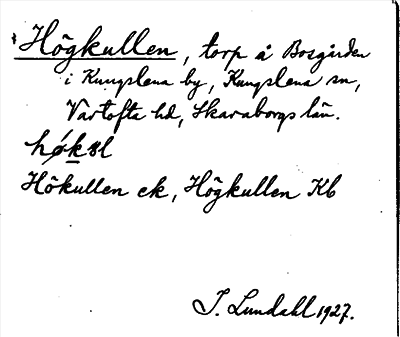 *Högkullen, torp å Bosgården
i Kungslena by, Kungslena sn,
Vartofta hd, Skaraborgs län.
Hökullen ek, Högkullen Kb
I. Lundahl 1927.